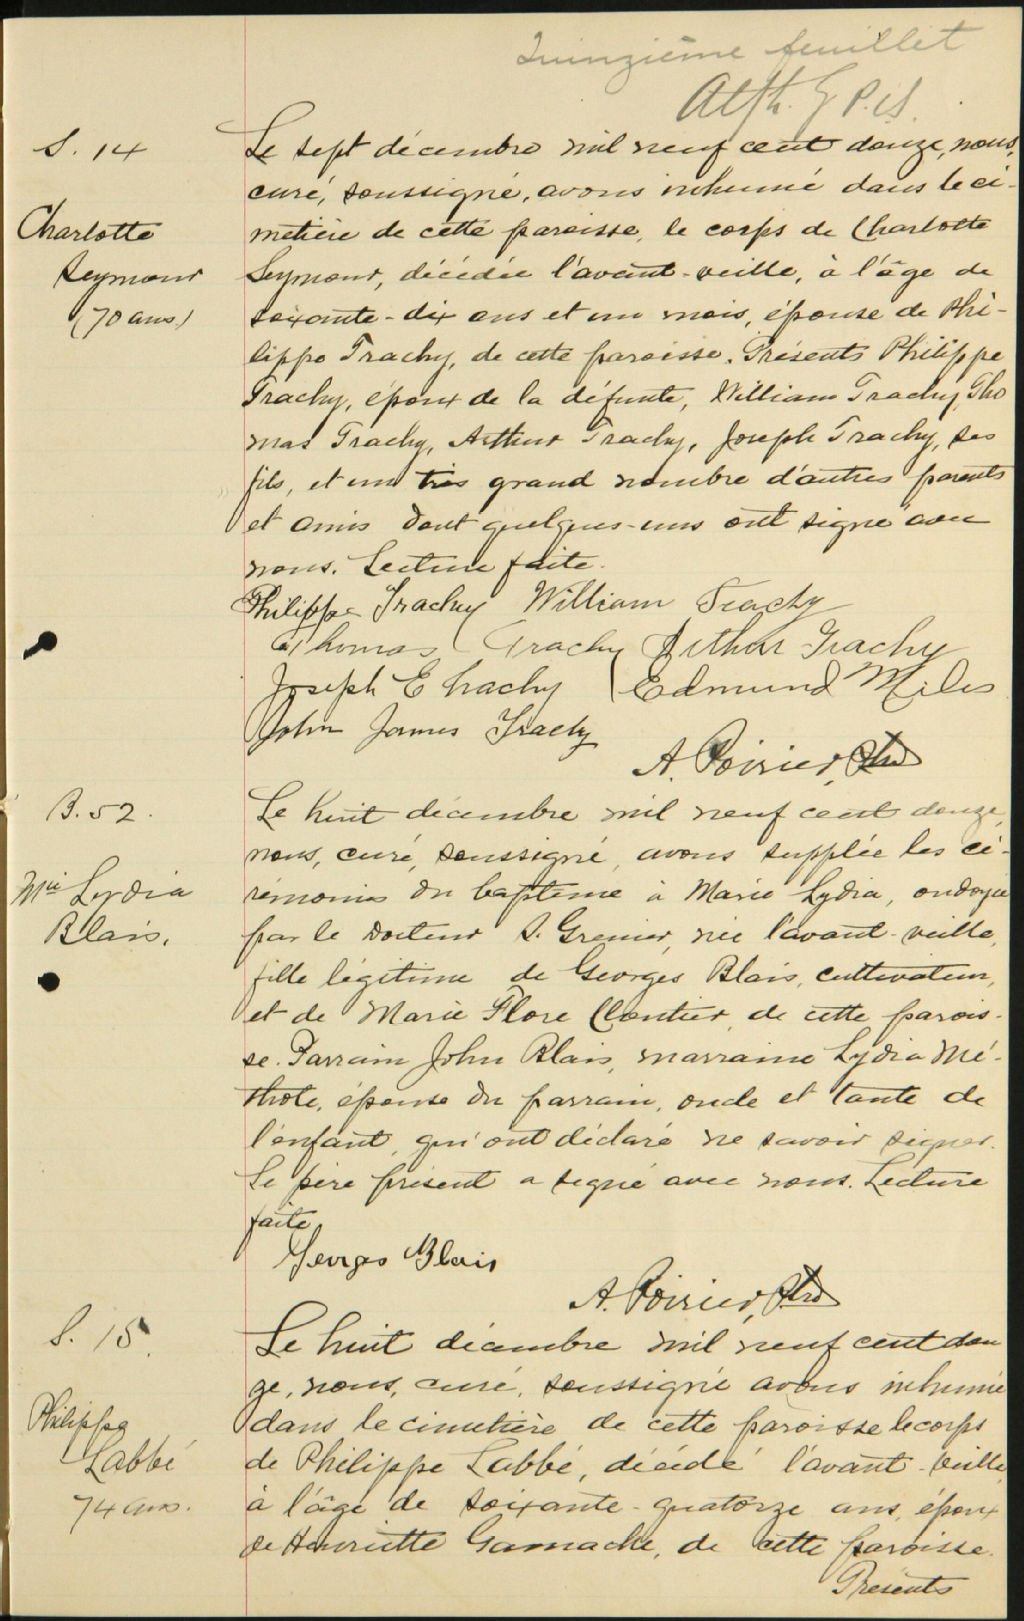 Quinzième feuillet
Alph. G P.C.S.
S. 14
Charlotte
Seymour
(70 ans)
Le sept décembre mil neuf cent douze, nous,
curé, soussigné, avons inhumé dans le ci-
metière de cette paroisse, le corps de Charlotte
Seymour, décédée l'avant-veille, à l'âge de
soixante-dix ans et un mois, épouse de Phi-
lippe Trachy, de cette paroisse. Présents Philippe
Trachy, époux de la défunte, William Trachy, Tho
mas Trachy, Arthur Trachy, Joseph Trachy, ses
fils, et un très grand nombre d'autres parents
et amis dont quelques-uns ont signé avec
nous. Lecture faite.
Philippe Trachy William Trachy
Thomas Trachy Arthur Trachy
Joseph E Trachy Edmund Miles
John James Trachy
A. Poirier, Ptre
B. 52.
Mie Lydia
Blais.
Le huit décembre mil neuf cent douze,
nous, curé, soussigné, avons supplée les cé-
rémonies du baptême à Marie Lydia, ondoyée
par le Docteur S. Grenier, née l'avant-veille,
fille légitime de Georges Blais, cultivateur,
et de Marie Flore Cloutier, de cette parois-
se. Parrain John Blais, marraine Lydia Mé-
thote, épouse du parrain, oncle et tante de
l'enfant, qui ont déclaré ne savoir signer.
Le père présent a signé avec nous. Lecture
faite.
Georges Blais
A. Poirier, Ptre
S. 15.
Philippe
Labbé
74 ans.
Le huit décembre mil neuf cent dou
ze, nous, curé, soussigné avons inhumé
dans le cimetière de cette paroisse le corps
de Philippe Labbé, décédé l'avant-veille
à l'âge de soixante-quatorze ans, époux
de Henriette Gamache, de cette paroisse.
Présents